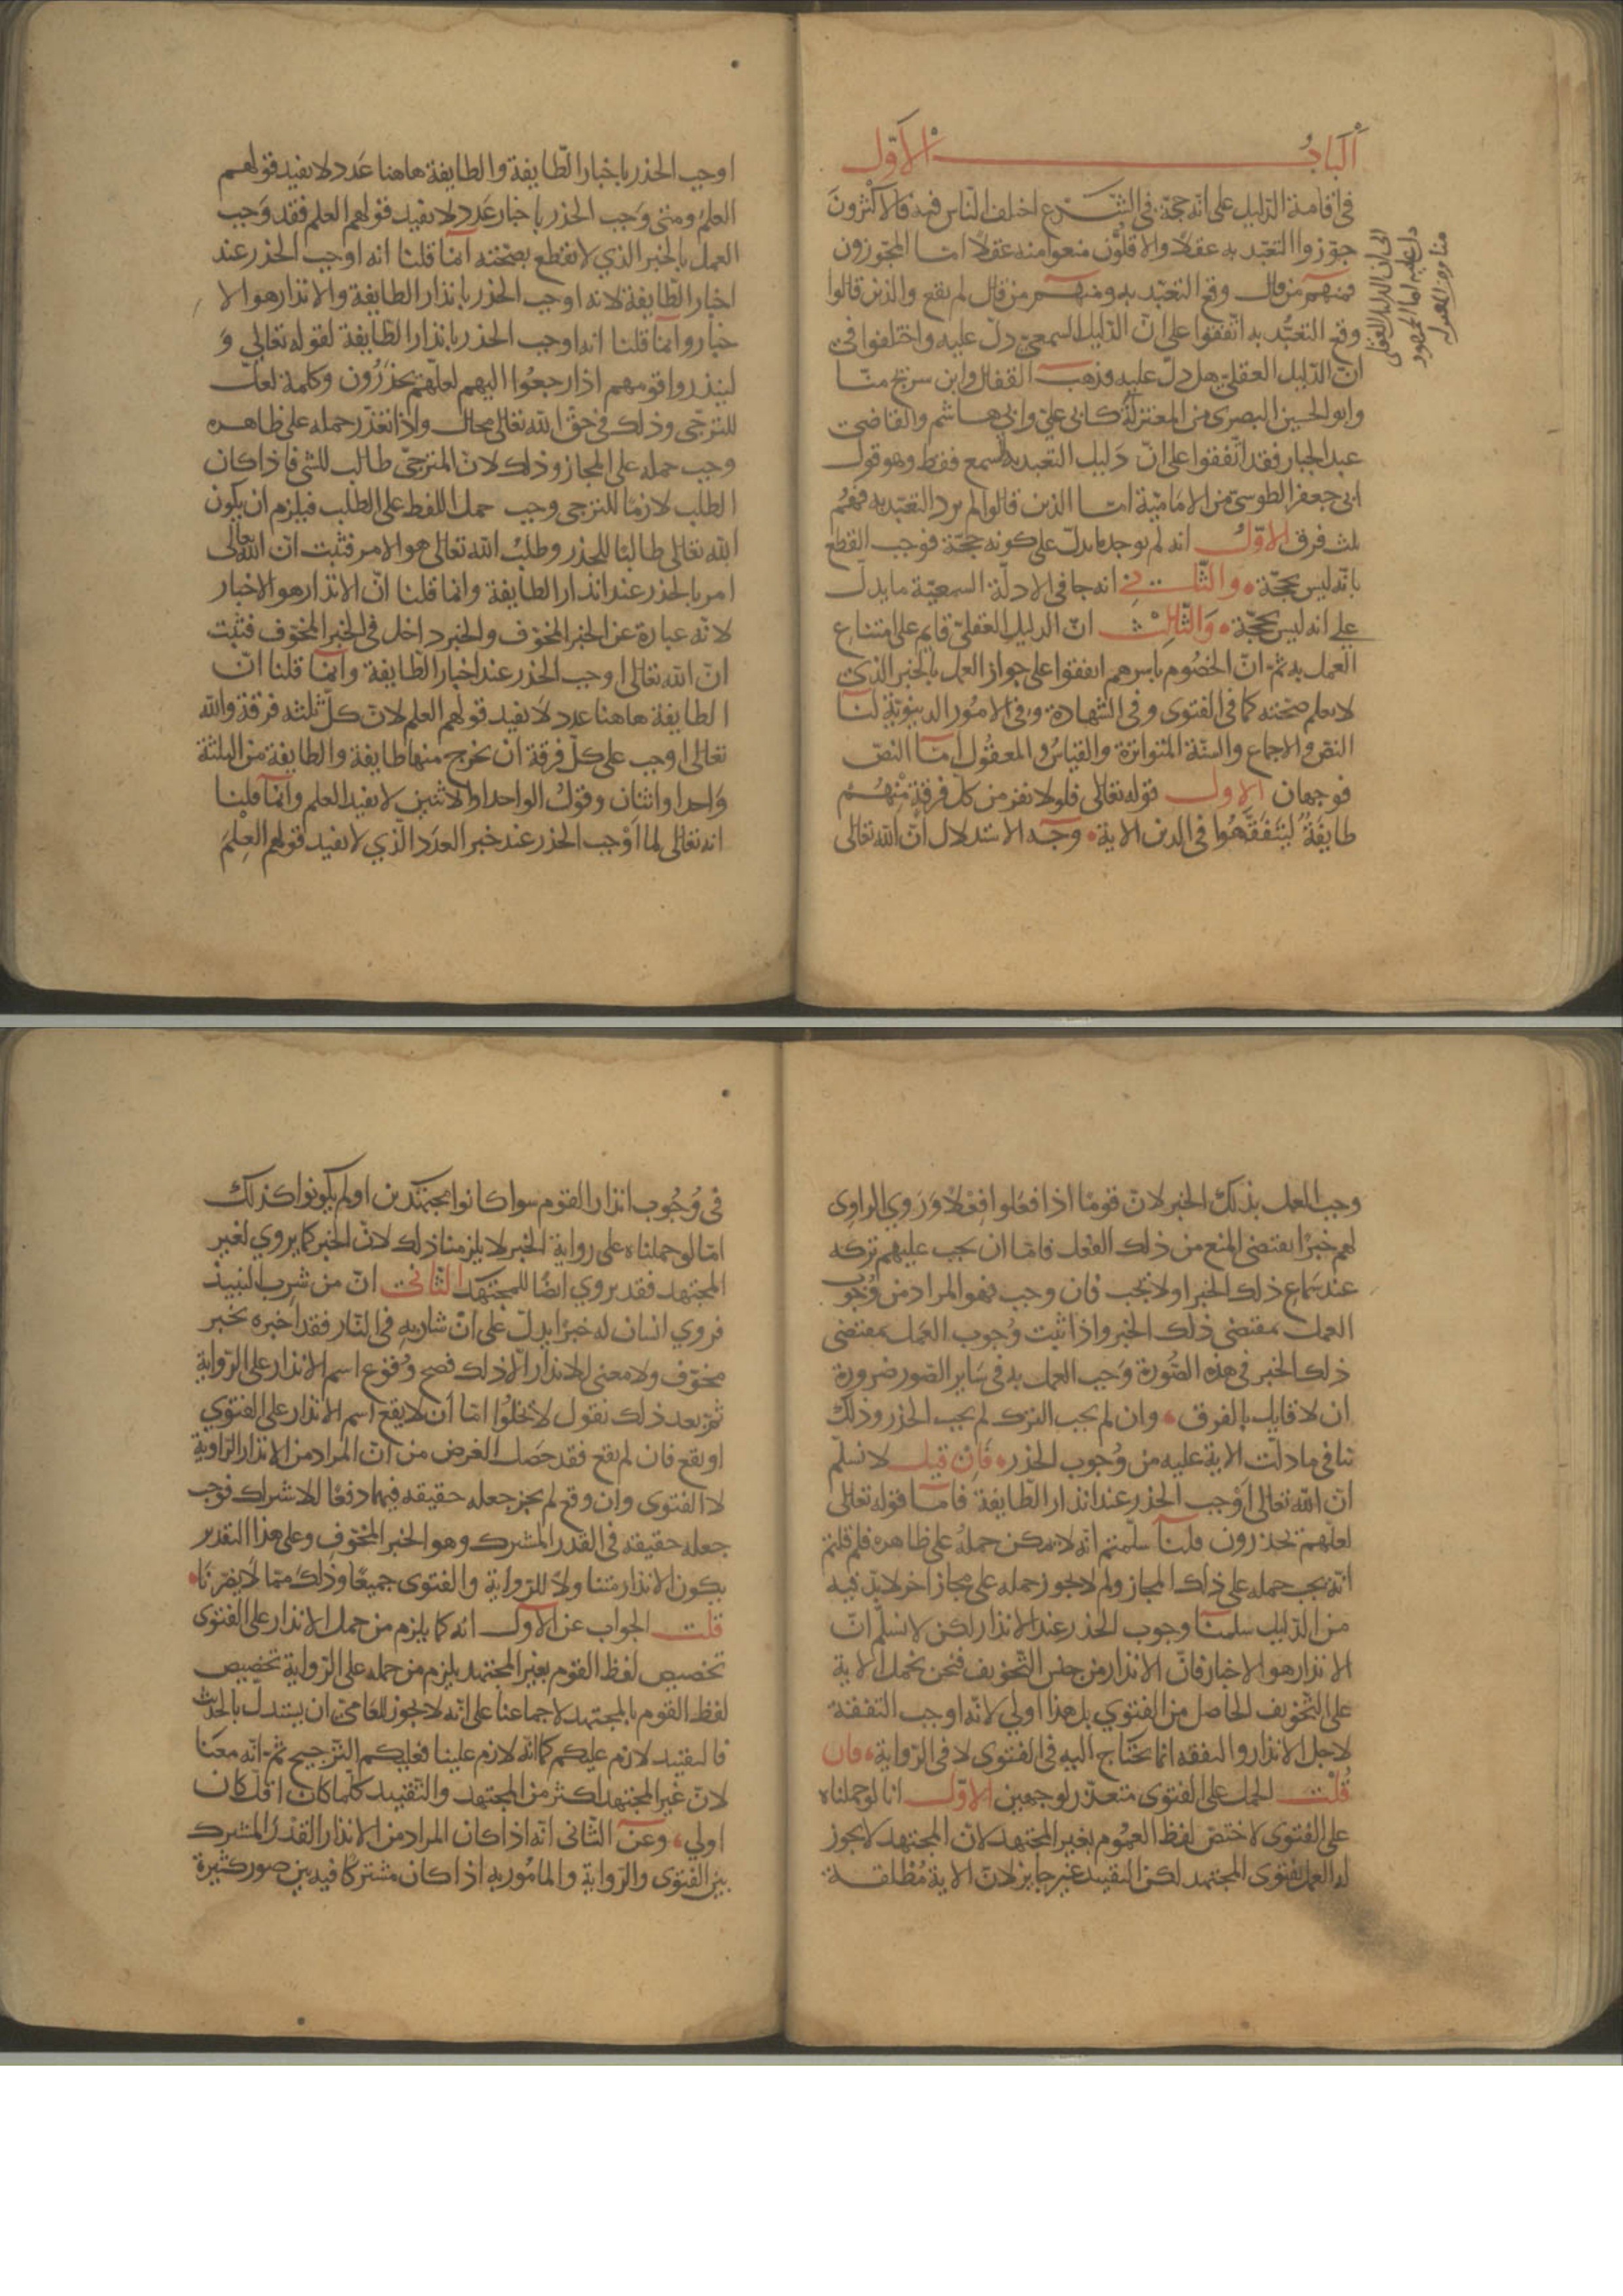 الباب الاول
في اقامة الدليل على انه حجة في الشرع اختلف الناس فيه فالاكثرون
جوّزوا التعبّد به عقلا والاقلّون منعوا منه عقلا امّا المجوّزون
فمنهم من قال وقع التعبّد به ومنهم من قال لم يقع والذين قالوا
وقع التعبُّد به اتّفقوا على انّ الدليل السمعيّ دلّ عليه واختلفوا في
انّ الدّليل العقليّ هل دلّ عليه فذهب القفال وابن سريج منّا
وابو الحسين البصري من المعتزلة كابي علي وابي هاشم والقاضي
عبد الجبار فقد اتّفقوا على انّ دليل التعبد به السمع فقط وهو قول
ابي جعفر الطوسيّ من الاماميّة امّا الذين قالوا لم يرد التعبّد به فهُم
ثلث فرق الاوّلُ انه لم يوجد ما يدلّ على كونه حجّة فوجب القطع
بانّه ليس بحجّة والثّاني انه جا في الادلّة السمعيّة ما يدلّ
على انه ليس بحجّة وَالثّالِث انّ الدليل العقليّ قايم على امتناع
العمل به ثمّ انّ الخصُوم باسرهم اتفقوا على جواز العمل بالخبر الذي
لا يعلم صحّته كما في الفتوى وفي الشهادة وفي الامُور الدنيويّة لنا
النصّ والاجماع والسنّة المتواترة والقياسُ والمعقُول امّا النصّ
فوجهان الاول قوله تعالى فلولا نفر من كلّ فرقةٍ مِنْهُم
طايفَةٌ لِيَتَفَقَّهُوا في الدين الاية وجه الاستدلال انّ الله تعالى
الى ان الدليل العقلى
دل عليه اما الجمهور
منا ومن المعتزله
اوجب الحذر باخبار الطّايفة والطايفة هاهنا عَدد لا يفيد قولهم
العلمُ ومتى وَجب الحذر باخبار عَددٍ لا يفيد قولهم العلم فقد وَجب
العمل بالخبر الذي لا نقطع بصحّته انّما قلنا انه اوجب الحذر عند
اخبار الطّايفة لانه اوجب الحذر بانذار الطايفة والانذار هو الا
خبار وانّما قلنا انه اوجب الحذر بانذار الطّايفة لقوله تعالى وَ
لينذروا قومهم اذا رجعُوا اليهم لعلّهم يحذَرُون وكلمة لعلّ
للترجّي وذلك في حقّ الله تعالى محال واذا تعذّر حمله على ظاهره
وجب حمله على المجاز وذلك لانّ المترجّي طالب للشي فاذا كان
الطلب لازمًا للترجي وجب حمل اللفظ على الطلب فيلزم ان يكون
الله تعالى طالبًا للحذر وطلبُ الله تعالى هو الامر فثبت انّ الله تعالى
امر بالحذر عند انذار الطايفة وانما قلنا انّ الانذار هو الاخبار
لانّه عبارة عن الخبر المخوّف والخبر داخل في الخبر المخوّف فثبت
انّ الله تعالى اوجب الحذر عند اخبار الطّايفة وانّما قلنا انّ
الطايفة هاهنا عدد لا يفيد قولهم العلم لانّ كلّ ثلثه فرقة والله
تعالى اوجب على كلّ فرقة ان يخرج منها طايفة والطايفة من الثلثة
وَاحد او اثنان وقولُ الواحد او الاثنين لا يفيد العلم وانّما قلنا
انه تعالى لما اوْجب الحذر عند خبر العدَد الّذي لا يفيد قولهم العِلمَ
وجب العمل بذلك الخبر لانّ قومًا اذا فعَلوا فِعْلاً وَرَوي الراوي
لهم خبرًا يقتضي المنع من ذلك الفعل فامّا ان يجب عليهم تركه
عند سَماع ذلك الخبر او لا يجب فان وجب فهو المراد من وُجوب
العمل بمقتضى ذلك الخبر واذا ثبت وُجوب العَمل بمقتضى
ذلك الخبر في هذه الصُّورة وَجب العمل به في سَاير الصّور ضرورة
ان لا قايل بالفرق وان لم يجب الترك لم يجب الحذر وذلك
ينافي ما دلّت الاية عليه من وُجوب الحذر فَاِن قيل لا نسلّم
انّ الله تعالى اَوْجب الحذر عند انذار الطّايفة فامّا قوله تعالى
لعلّهم يحذرون قلنا سلّمتم انّه لا يمكن حملهُ على ظاهره فلم قلتم
انّه يجب حمله على ذلك المجاز ولم لا يجوز حمله على مجاز اخر لا بدّ فيه
من الدّليل سلمنا وجوب الحذر عند الانذار لكن لا نسلّم انّ
الانذار هو الاخبار فانّ الانذار من جنس التّخويف فنحن نحمل الاية
على التّخويف الحاصل من الفتوي بل هذا اولي لانّه اوجب التفقّه
لاجل الانذار والتفقه انما يحتاج اليه في الفتوى لا في الرّواية فان
قُلْت الحمل على الفتوى متعذّر لوجهين الاوّل انا لو حملناه
على الفتوى لاختصّ لفظ العمُوم بغير المجتهد لانّ المجتهد لا يجوز
له العمل بفتوى المجتهد لكن التقييد غير جايز لانّ الاية مُطلقة
في وُجُوب انذار القوم سوا كانوا مجتهدين او لم يكونوا كذلك
امّا لو حملناه على رواية الخبر لا يلزمنا ذلك لانّ الخبر كما يروي لغير
المجتهد فقد يروي ايضًا للمجتهد الثاني انّ من شرب النبيذ
فروي انسان له خبرًا يدلّ على انّ شاربهِ في النّار فقد اخبره بخبر
مخوّف ولا معنى للانذار الّا ذلك فصح وُقوع اسم الانذار على الرّواية
ثمّ بعد ذلك نقول لا يخلُوا امّا أن لا يقع اسم الانذار على الفتوي
او يقع فان لم يقع فقد حَصَل الغرض من انّ المراد من الانذار الرّاوية
لا الفتوى وان وقع لم يجز جعله حقيقه فيهما دفعًا للاشراك فوجب
جعله حقيقه في القدر المشترك وهو الخبر المخوّفِ وعلى هذا التقدير
يكون الانذار متناولاً للرّواية والفتوى جميعًا وذلك ممّا لا يضرّنَا
قلت الجواب عن الاول انه كما يلزم من حمل الانذار على الفتوى
تخصيص لفظ القوم بغير المجتهد يلزم من حمله على الرّواية تخصيص
لفظ القوم بالمجتهد لاجماعنا على انّه لا يجوز للعَاميّ ان يستدلّ بالحديث
فالتقييد لازم عليكم كما انّه لازم علينا فعليكم التّرجيح ثمّ انّه معنا
لانّ غير المجتهد اكثر من المجتهد والتّقييد كلّما كان اقلّ كان
اولي وعن الثّانى انّه اذا كان المراد من الانذار القدْرُ المشترك
بين الفتوى والرّواية والمامُور به اذا كان مشتركًا فيه بين صور كثيرة